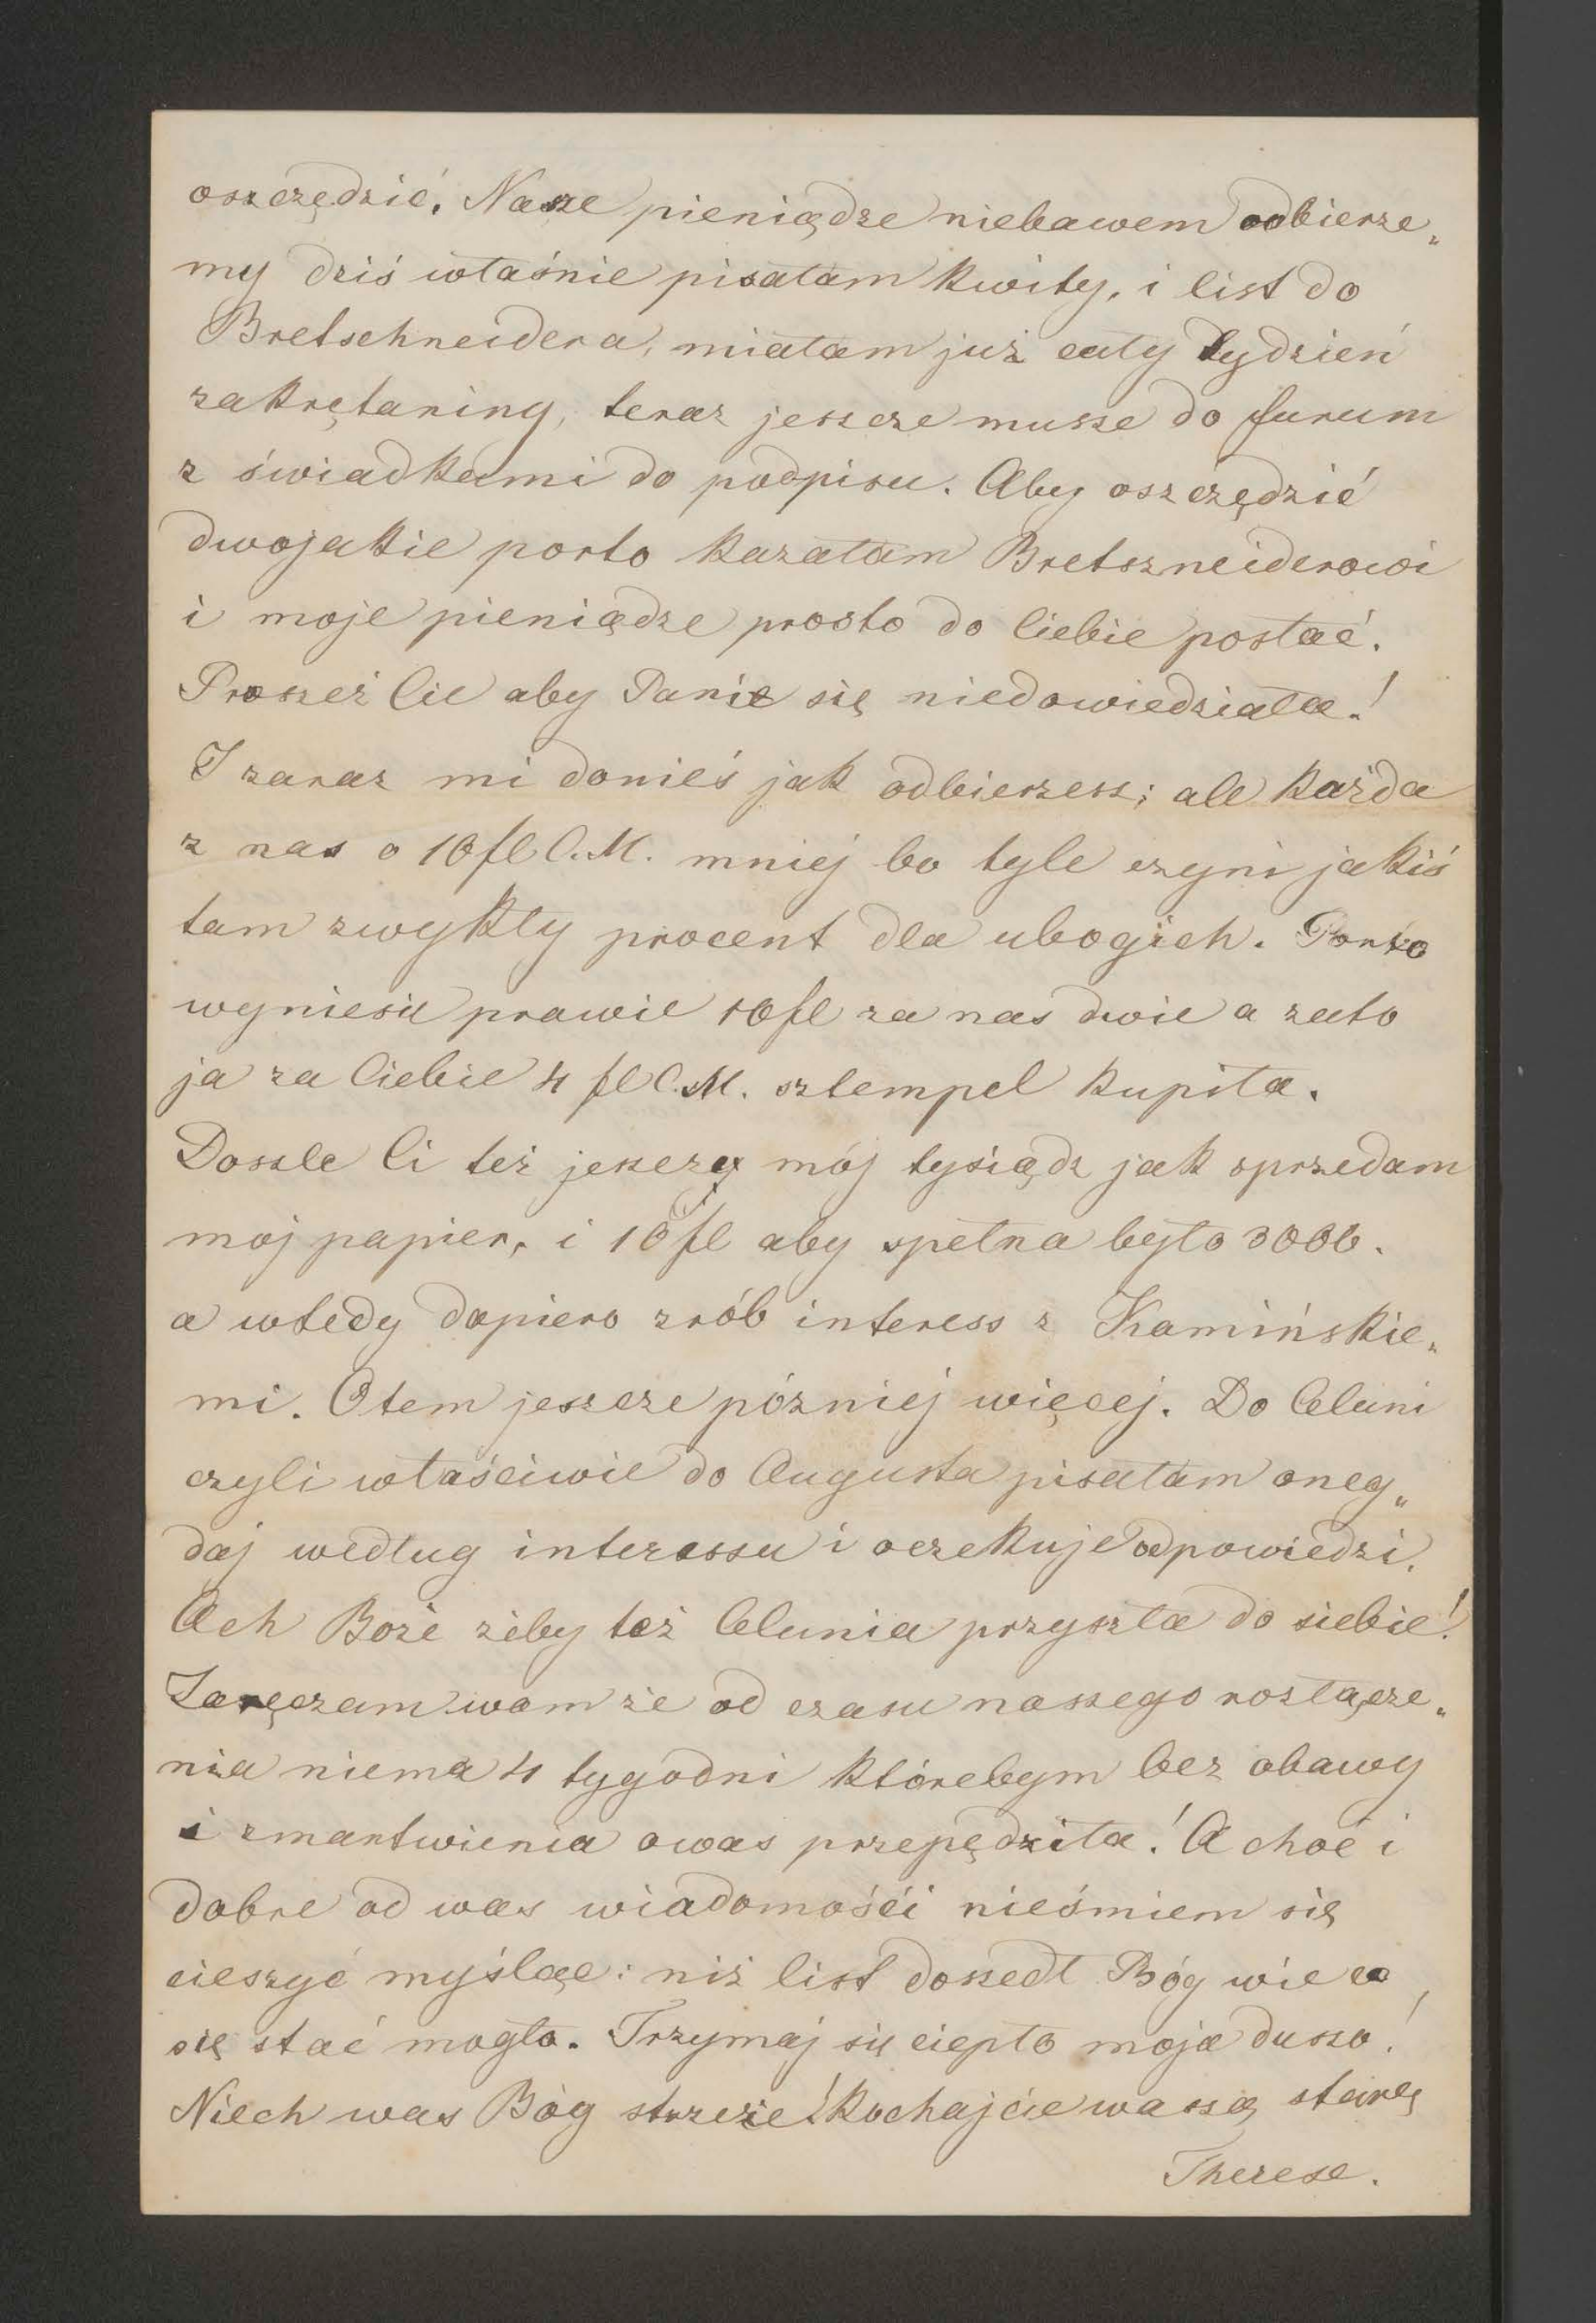 oszczędzić. Nasze pieniądze niebawem odbierze„
my dziś właśnie pisałam kwity, i list do
Bretschneidera, miałam już cały tydzień
zakrętaniny, teraz jeszcze musze do furum
z świadkami do podpisu. Aby oszczędzić
dwojakie porto kazałam Bretszneiderowi
i moje pieniądze prosto do Ciebie posłać.
Proszeż Cie aby Panie się niedowiedziała!
I zaraz mi donieś jak odbierzesz; ale każda
z nas o 10 fl C.M. mniej bo tyle czyni jakiś
tam zwykły procent dla ubogich. Porto
wyniesie prawie 10 fl za nas dwie a zato
ja za Ciebie 4 fl C.M. sztempel kupiła.
Doszle Ci też jeszczy mój tysiądz jak sprzedam
moj papier, i 10 fl aby spełna było 3000.
a wtedy dopiero zrób interess z Kamińskie„
mi. Otem jeszcze pózniej więcej. Do Celuni
czyli właściwie do Augusta pisałam oneg„
daj według interessu i oczekuje odpowiedzi.
Ach Boże żeby też Celunia przyszła do siebie!
Zaręczam wam że od czasu naszego rozłącze„
nia niema 4 tygodni którebym bez obawy
i zmartwienia owas przepędziła! A choć i
dobre od was wiadomośći nieśmiem się
cieszyć myśląc: niż list doszedł Bóg wie co,
się stać mogło. Trzymaj się ciepło moja duszo!
Niech was Bóg strzeże! Kochajcie waszą starę
Therese.